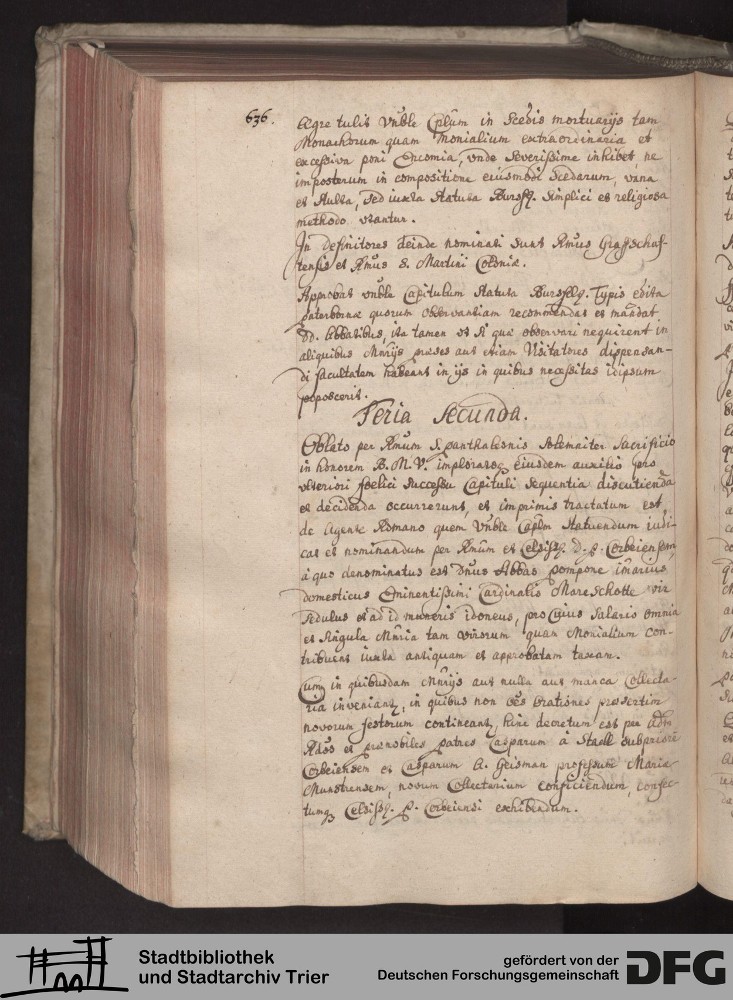 636.
Ægre tulit Vnble Cplũm in Scedis mortuarijs tam
Monachorum quam Monialium extraordinaria et
excessiva poni Encomia, vnde severissime inhibet, ne
imposterum in compositione eiusmodi Scedarum, vana
et stulta, sed iuxta statuta Bursf. simplici et religiosa
methodo vtantur.
In Definitores deinde nominati sunt Rmũs Graffschaf-
tensis et Rmũs S. Martini Coloniæ.
Approbat vnble Capitulum statuta Bursfel. Typis edita
paterbornæ quorum observantiam recommendat et mandat
DD. Abbatibus, ita tamen vt si quæ observari nequirent in
aliquibus Mnrijs præses aut etiam Visitatores dispensan-
di facultatem habeant in ijs in quibus necessitas idipsum
poposcerit.
Feria Secunda.
Oblato per Rmũm S. panthaleonis solemniter sacrificio
in honorem B. M. V. imploratoq eiusdem auxilio pro
vlteriori foelici successu Capituli sequentia discutienda
et decidenda occurrerunt, et imprimis tractatum est
de Agente Romano quem Vnble Caplm statuendum iudi-
cat et nominandum per Rmũm et Celsiss. D. P. Corbeiensem,
à quo denominatus est Dnũs Abbas pompone
domesticus Eminentissimi Cardinalis Moreschotte vir
sedulus et ad id muneris idoneus, pro cuius salario omnia
et singula Mnria tam virorum quam Monialium con-
tribuent iuxta antiquam et approbatam taxam.
Cum in quibusdam Mnrijs aut nulla aut manca Collecta-
ria inveniant, in quibus non oẽs Orationes præsertim
novorum festorum contineant, hinc decretum est per
Rdos et prænobiles patres Casparum à Stael subpriorẽ
Corbeiensem et Casparum A. Geisman professum Mariæ-
Munstrensem, novum Collectarium conficiendum, confec-
tumq Celsiss. P. Corbeiensi exhibendum.
Stadtbibliothek
und Stadtarchiv Trier
gefördert von der
Deutschen Forschungsgemeinschaft
DFG